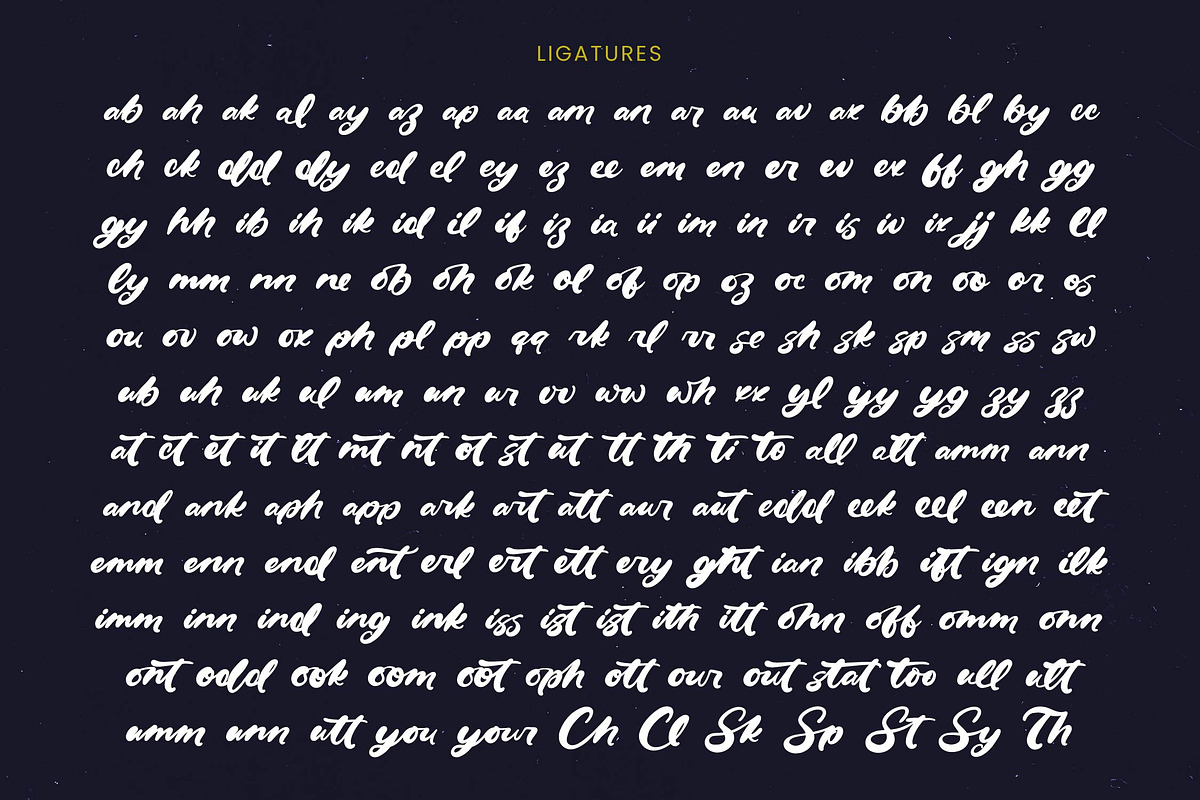 LIGATURES
ab ah ak al ay az ap aa am an ar au av ax bb bl by cc
ch ck dd dy ed el ey ez ee em en er ev ex ff gh gg
gy hh ib ih ik id il if iz ia ii im in ir is iv ix jj kk ll
ly mm nn ne ob oh ok ol of op oz oc om on oo or os
ou ov ow ox ph pl pp qq rk rl rr se sh sk sp sm ss sw
ub uh uk ul um un ur vv ww wh xx yl yy yg zy zz
at ct et it lt mt nt ot st ut tt th ti to all alt amm ann
and ank aph app ark art att aur aut edd eek eel een eet
emm enn end ent erl ert ett ery ght ian ibb ift ign ilk
imm inn ind ing ink iss ist ist ith itt ohn off omm onn
ont odd ook oom oot oph ott our out stat too ull ult
umm unn utt you your Ch Cl Sk Sp St Sy Th